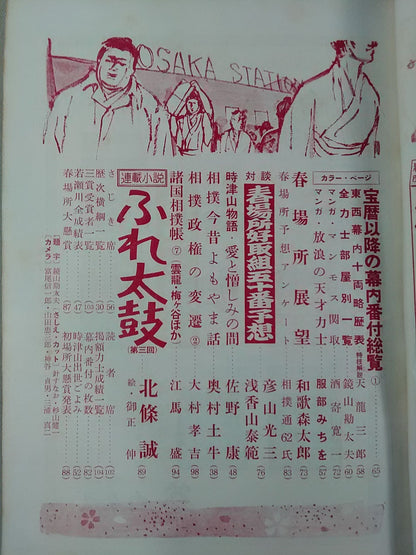 OSAKA STATION
カラー・ページ
宝暦以降の幕内番付総覧 ① 65
東西幕内十両略歴表
全力士部屋別一覧 特技解説 天龍三郎 58
マンガ・マンモス関取 鏡山勘太夫 69
マンガ・放浪の天才力士 酒寄寛一 72
服部みちを 57
春場所展望 和歌森太郎 73
春場所予想アンケート 相撲通62氏 83
対談 春場所好取組五十番予想 彦山光三 浅香山泰範 76
時津山物語 愛と憎しみの間 佐野康 48
相撲今昔よもやま話 奥村土牛 38
相撲政権の変遷 ② 大村孝吉 98
諸国相撲帳 ⑦ (雲龍・梅ケ谷ほか) 江馬盛 94
連載小説 ふれ太鼓 (第三回) 北條誠 絵・御正伸 89
さじき席 56
歴次横綱一覧 30
三賞受賞者一覧 103
若瀬川全成績表 47
春場所大懸賞 87
読者席 104
掲額力士成績一覧 102
幕内番付の枚数 82
時津山出世ごよみ 52
初場所大懸賞発表 88